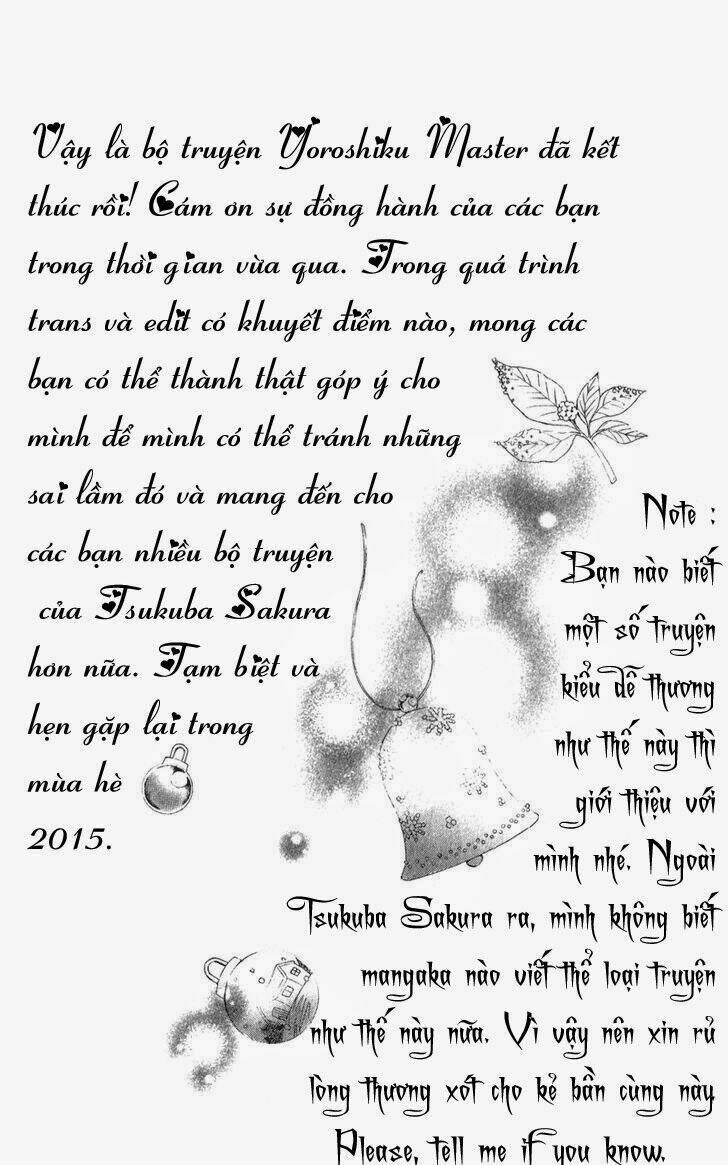 Vậy là bộ truyện Yoroshiku Master đã kết
thúc rồi! Cám ơn sự đồng hành của các bạn
trong thời gian vừa qua. Trong quá trình
trans và edit có khuyết điểm nào, mong các
bạn có thể thành thật góp ý cho
mình để mình có thể tránh những
sai lầm đó và mang đến cho
các bạn nhiều bộ truyện
của Tsukuba Sakura
hơn nữa. Tạm biệt và
hẹn gặp lại trong
mùa hè
2015.
Note :
Bạn nào biết
một số truyện
kiểu dễ thương
như thế này thì
giới thiệu với
mình nhé. Ngoài
Tsukuba Sakura ra, mình không biết
mangaka nào viết thể loại truyện
như thế này nữa. Vì vậy nên xin rủ
lòng thương xót cho kẻ bần cùng này.
Please, tell me if you know.